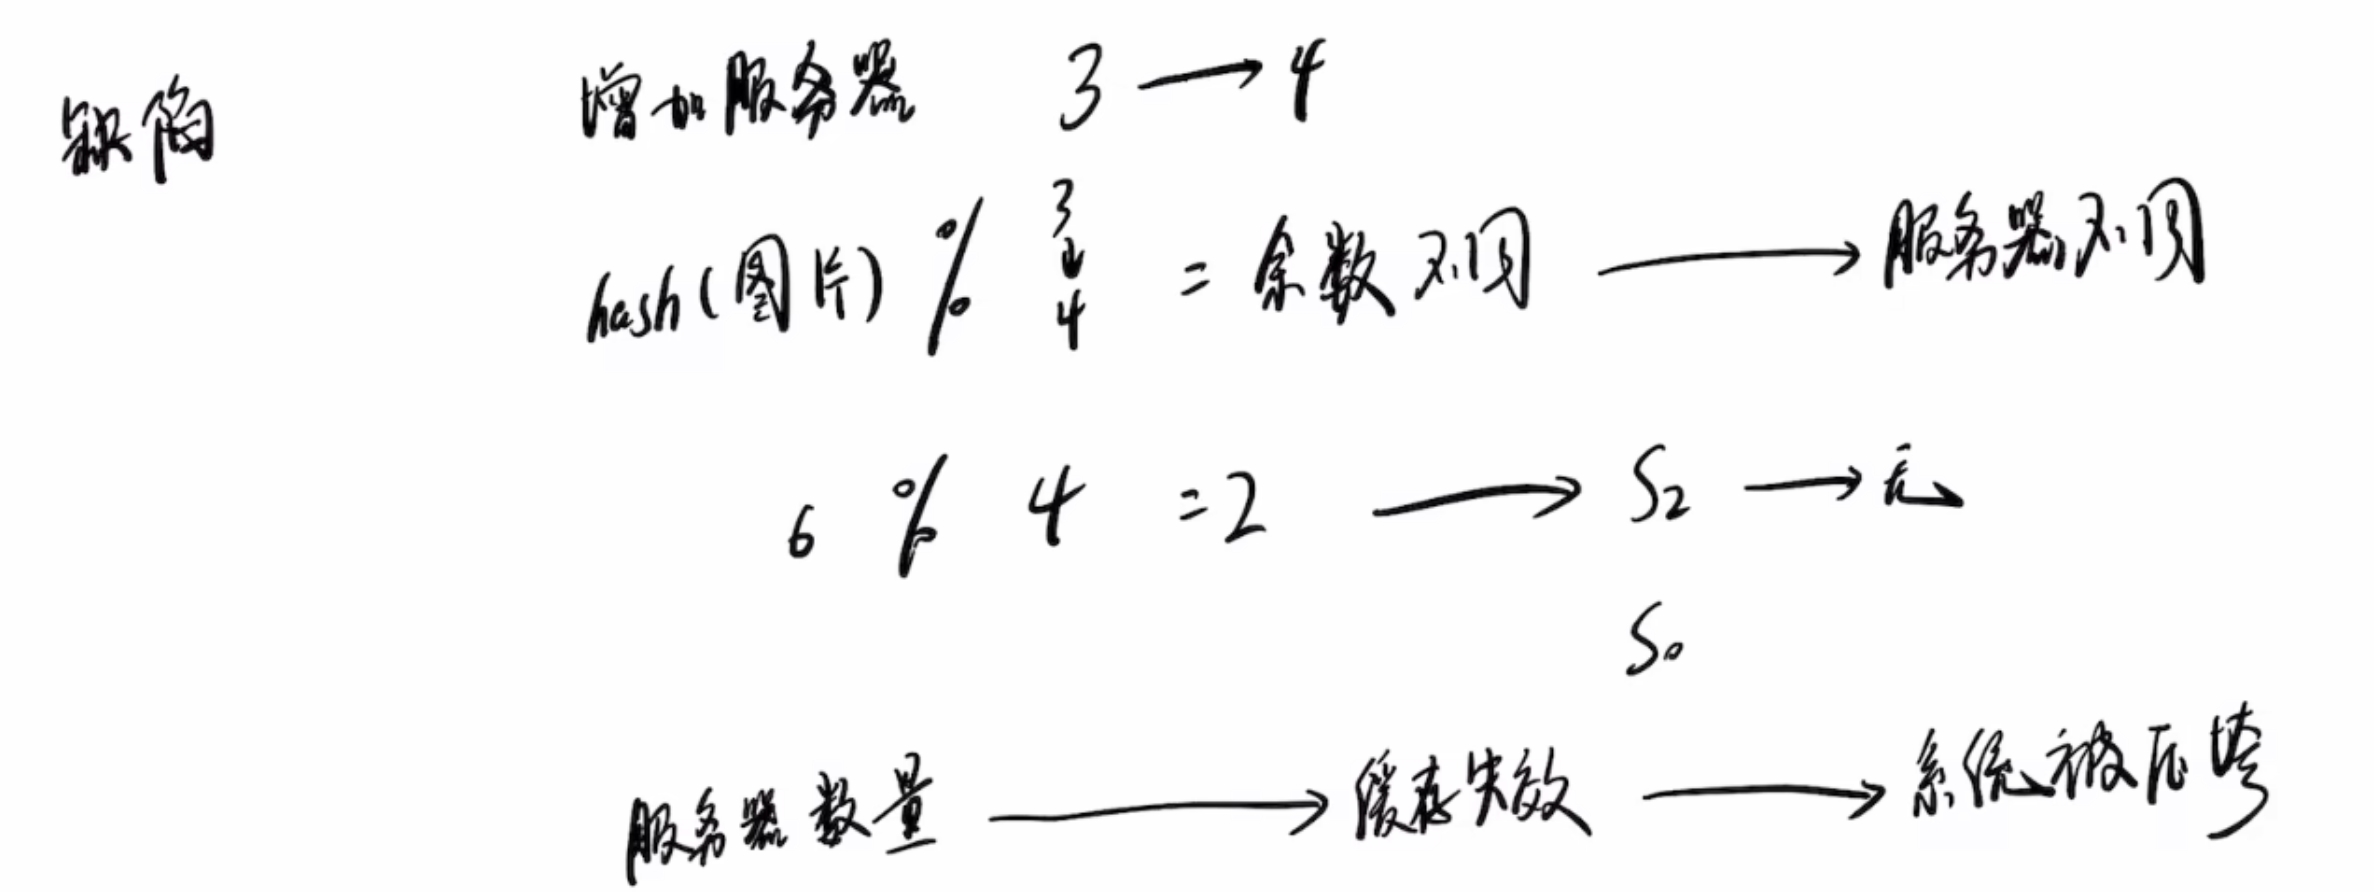 缺陷
增加服务器 3 → 4
hash(图片) % 3 ↓ 4 = 余数不同 → 服务器不同
6 % 4 = 2 → S2 → 无
S0
服务器数量 → 缓存失效 → 系统被压垮